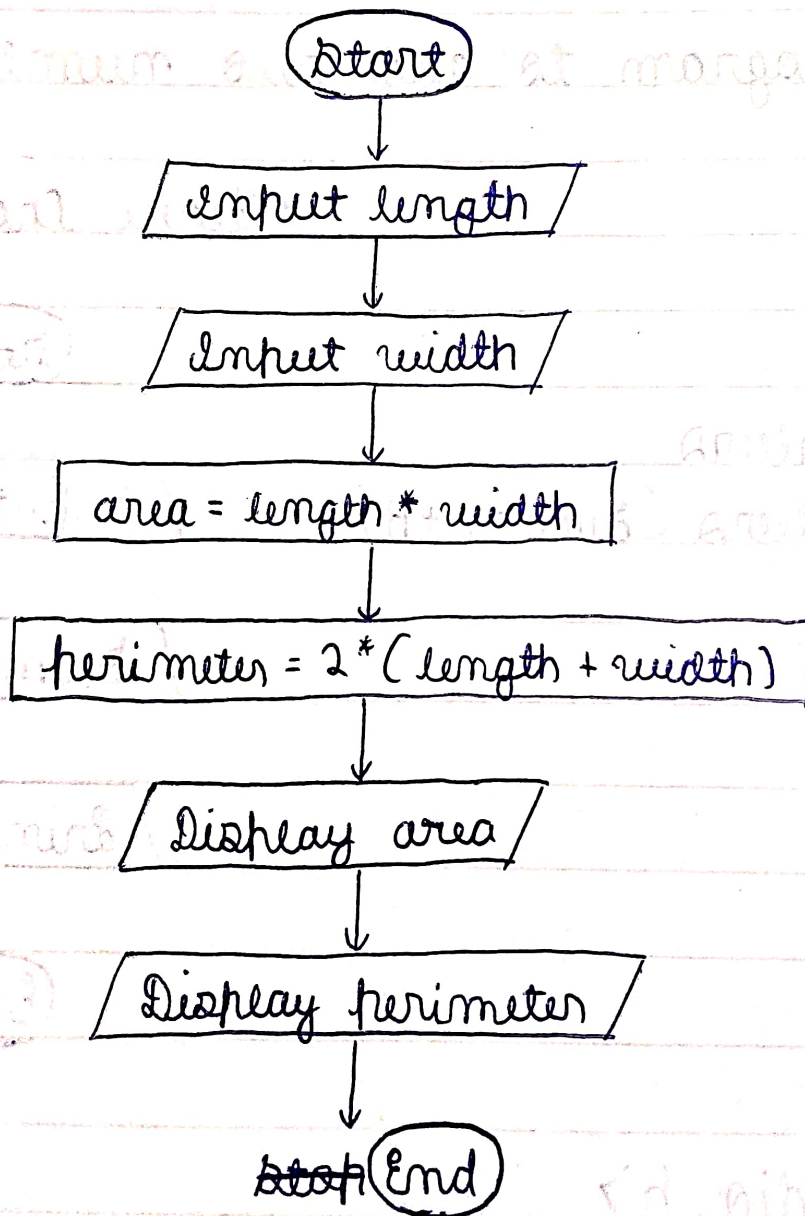 Start
Input length
Input width
area = length * width
perimeter = 2 * (length + width)
Display area
Display perimeter
~~stop~~ End